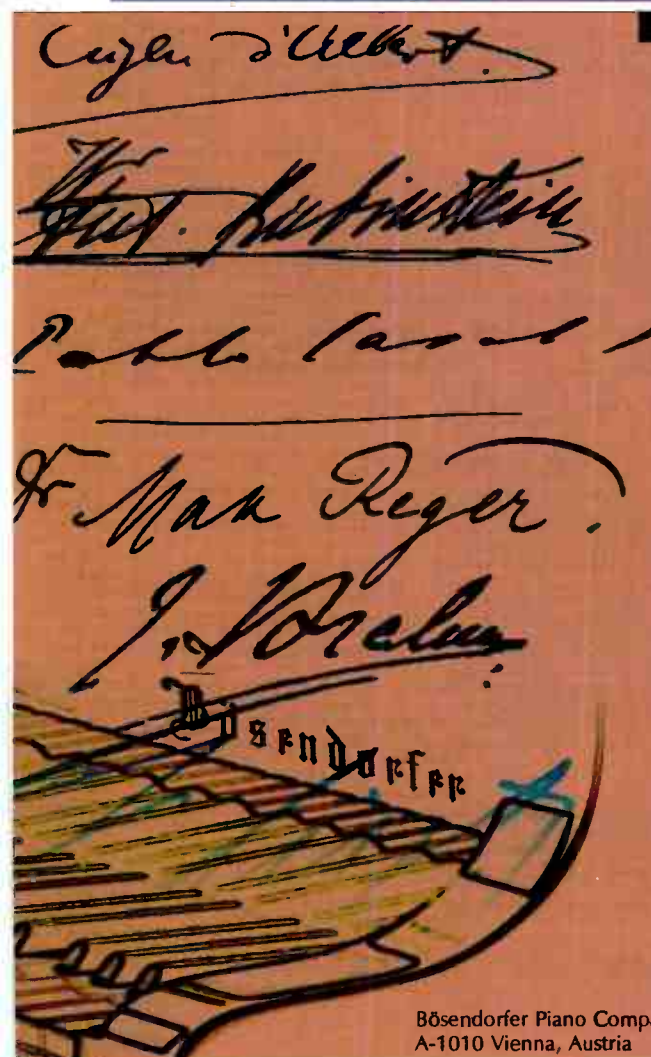 Eugen d'Albert.
Ant. Rubinstein
Pablo Casals
Dr Max Reger.
J. Brahms
sendorfer
Bösendorfer Piano Compa
A-1010 Vienna, Austria